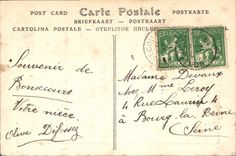 POST CARD Carte Postale POSTKARTE
BRIEFKAART — POSTKAART
CARTOLINA POSTALE — ОТКРЫТОЕ
Souvenir de
Bonsecours
Votre nièce
Madame Devaux
Chez Mme Leroy
4 Rue
à Bourg la Reine
Seine